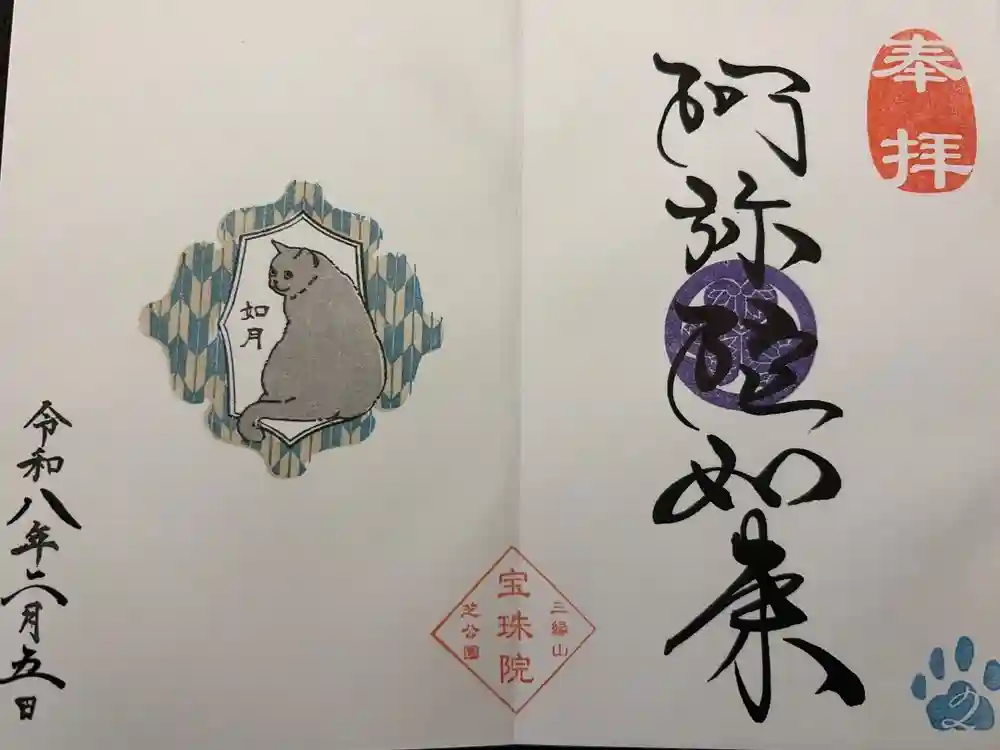 奉拝
阿弥陀如来
三縁山
宝珠院
芝公園
2
如月
令和八年二月五日